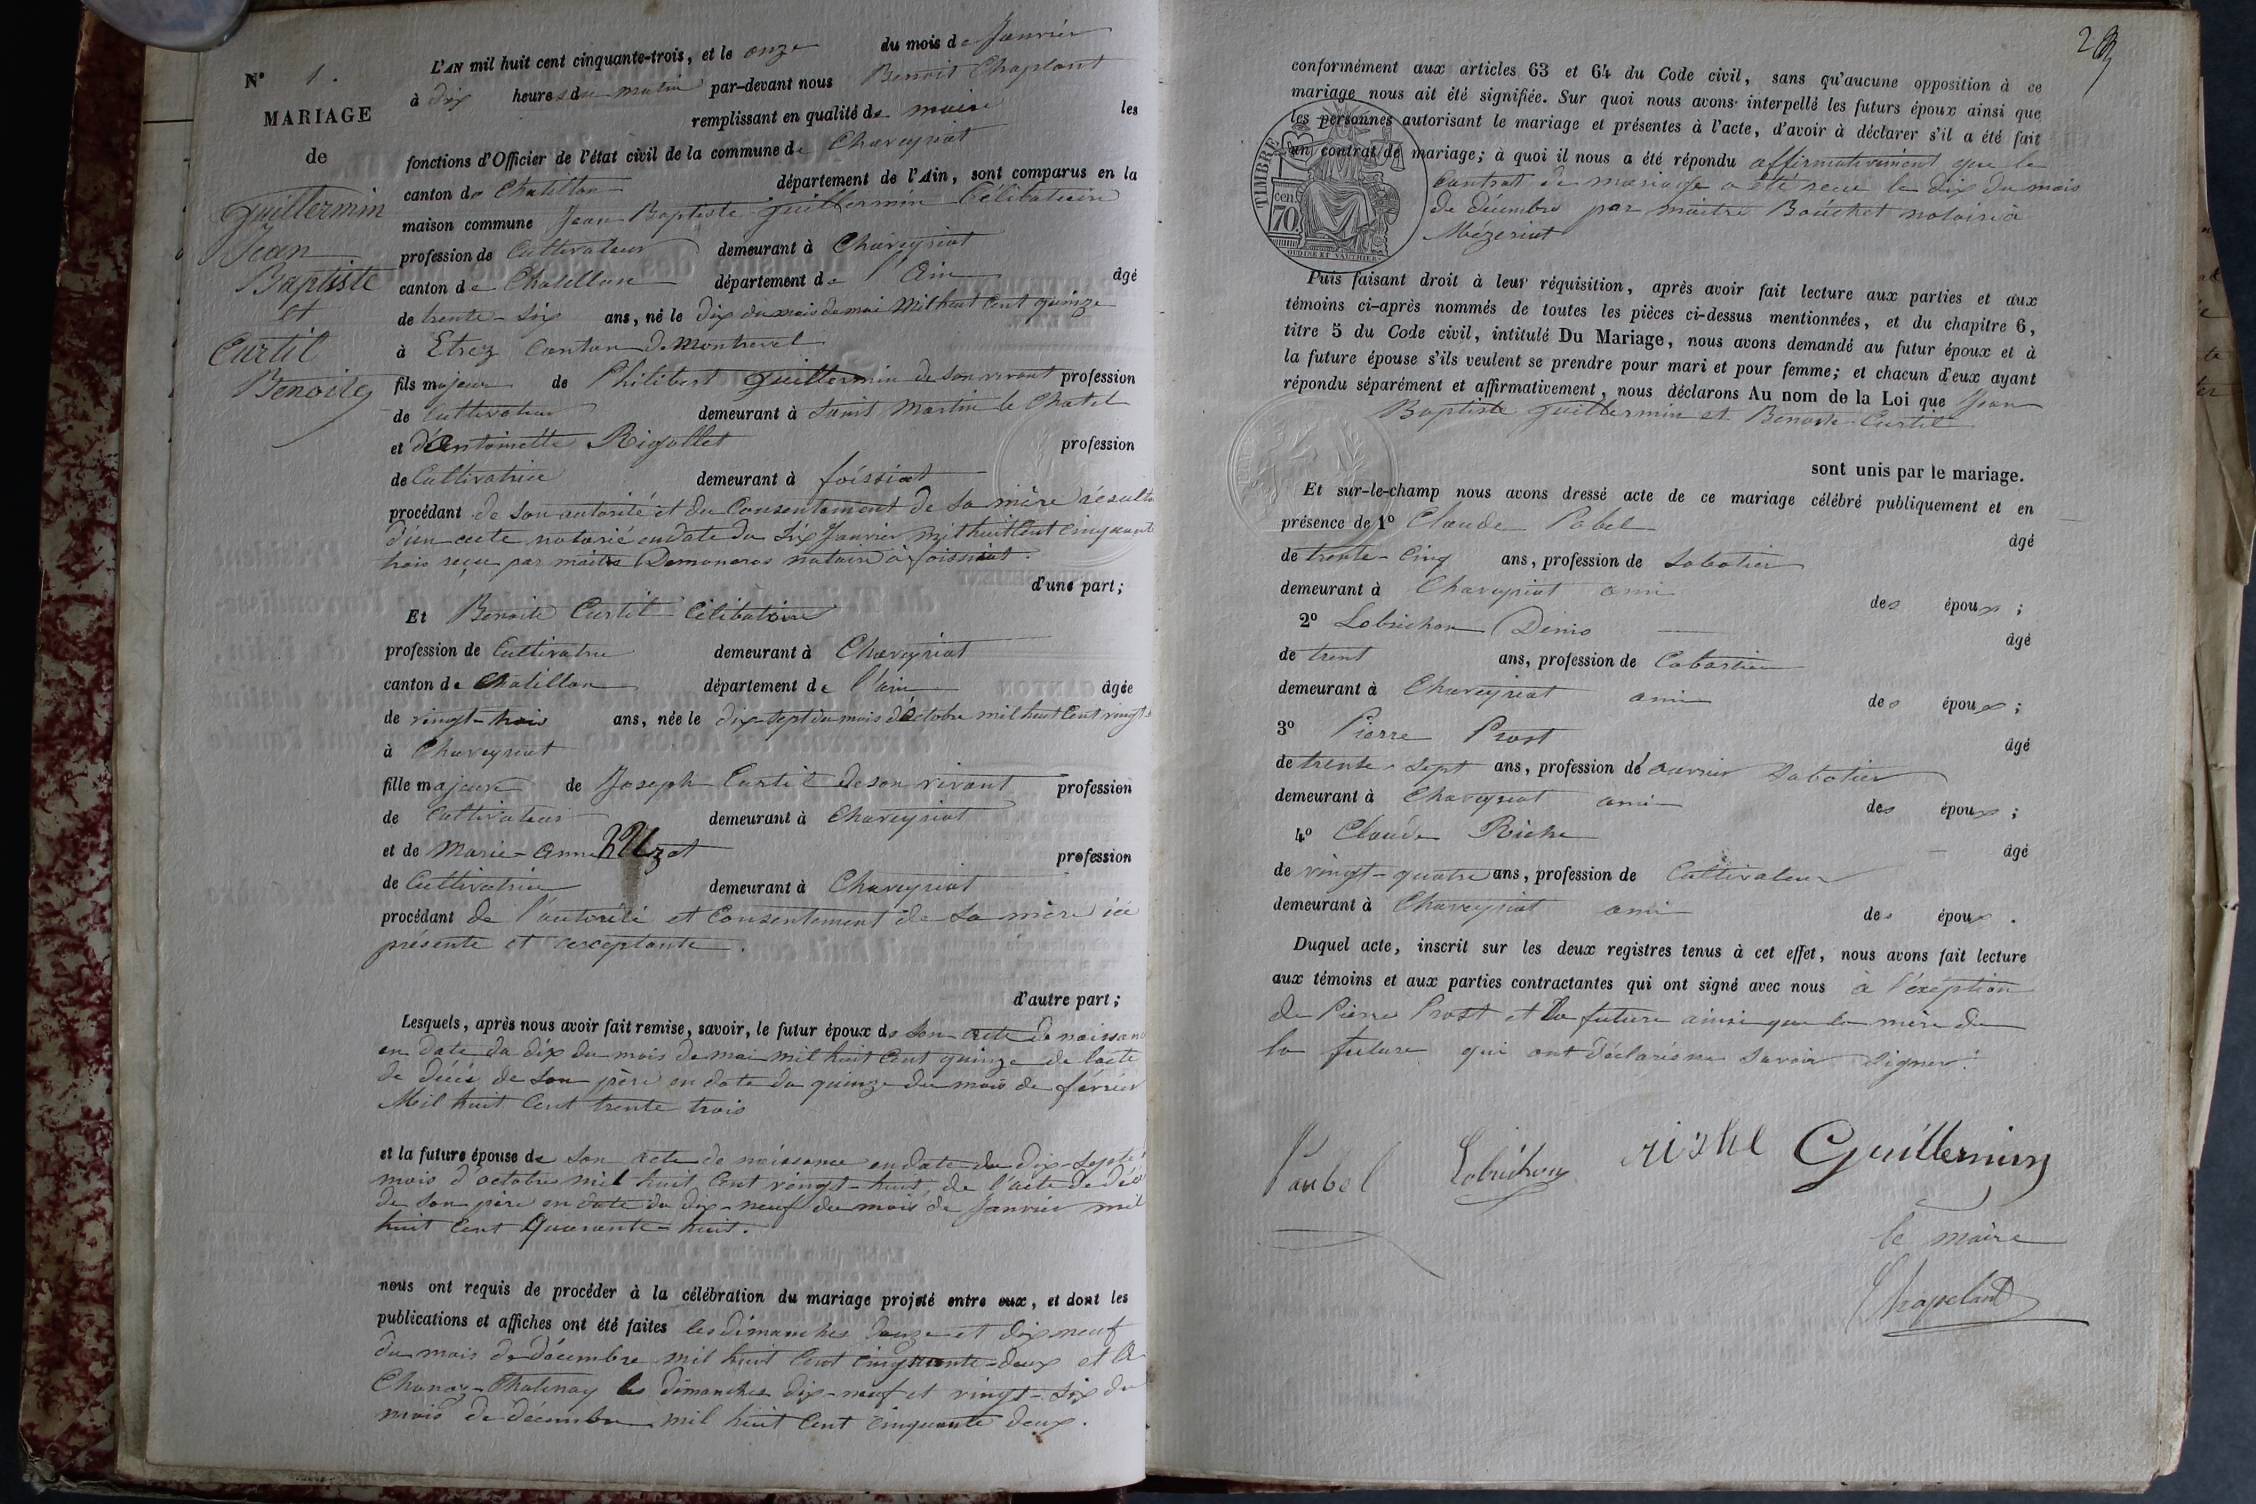 N° 1.
MARIAGE
de
Guillermin
Jean
Baptiste
et
Curtil
Benoite
L'AN mil huit cent cinquante-trois, et le onze du mois de Janvier
à dix heures du matin par-devant nous Benoit Chapland
remplissant en qualité de maire les
fonctions d'Officier de l'état civil de la commune de Chaveyriat
canton de Chatillon département de l'Ain, sont comparus en la
maison commune Jean Baptiste Guillermin Célibataire
profession de Cultivateur demeurant à Chaveyriat
canton de Chatillon département de l'Ain âgé
de trente-six ans, né le dix du mois de mai mil huit cent quinze
à Etrez Canton de Montrevel
fils majeur de Philibert Guillermin de son vivant profession
de Cultivateur demeurant à Saint Martin le Chatel
et d'Antoinette Rigollet profession
de Cultivatrice demeurant à foissiat
procédant de son autorité et du Consentement de sa mère résulta
d'un acte notarié en date du six Janvier mil huit Cent Cinquante
trois reçu par maitre notaire à foissiat.
d'une part;
Et Benoite Curtil Célibataire
profession de Cultivatrice demeurant à Chaveyriat
canton de Chatillon département de l'ain âgée
de vingt-trois ans, née le dix-sept du mois d'Octobre mil huit Cent vingt
à Chaveyriat
fille majeure de Joseph Curtil de son vivant profession
de Cultivateur demeurant à Chaveyriat
et de Marie-Anne profession
de Cultivatrice demeurant à Chaveyriat
procédant de l'autorité et Consentement de sa mère ici
présente et acceptante.
d'autre part;
Lesquels, après nous avoir fait remise, savoir, le futur époux de son acte de naissance
en date du dix du mois de mai mil huit Cent quinze de l'acte
de décès de son père en date du quinze du mois de février
Mil huit Cent trente trois
et la future épouse de son acte de naissance en date du dix-sept
mois d'octobre mil huit Cent vingt-huit, de l'acte de déc
de son père en date du dix-neuf du mois de Janvier mil
huit Cent Quarante-huit.
nous ont requis de procéder à la célébration du mariage projeté entre eux, et dont les
publications et affiches ont été faites les dimanches douze et dix neuf
du mois de décembre mil huit Cent cinquante-deux et à
Chanoz-Chatenay les dimanches dix-neuf et vingt-six du
mois de décembre mil huit Cent cinquante deux.
conformément aux articles 63 et 64 du Code civil, sans qu'aucune opposition à ce
mariage nous ait été signifiée. Sur quoi nous avons interpellé les futurs époux ainsi que
les personnes autorisant le mariage et présentes à l'acte, d'avoir à déclarer s'il a été fait
un contrat de mariage; à quoi il nous a été répondu affirmativement que le
Contrat de mariage a été recu le dix du mois
de décembre par maitre Bouchet notaire à
Mézeriat
TIMBRE
70 cen.
OUDINE ET VAUTHIER
Puis faisant droit à leur réquisition, après avoir fait lecture aux parties et aux
témoins ci-après nommés de toutes les pièces ci-dessus mentionnées, et du chapitre 6,
titre 5 du Code civil, intitulé Du Mariage, nous avons demandé au futur époux et à
la future épouse s'ils veulent se prendre pour mari et pour femme; et chacun d'eux ayant
répondu séparément et affirmativement, nous déclarons Au nom de la Loi que Jean
Baptiste Guillermin et Benoite Curtil
sont unis par le mariage.
Et sur-le-champ nous avons dressé acte de ce mariage célébré publiquement et en
présence de 1° Claude Pobel âgé
de trente-Cinq ans, profession de Sabotier
demeurant à Chaveyriat ami des époux;
2° Lobrichon Denis âgé
de trent ans, profession de Cabartier
demeurant à Chaveyriat ami des époux;
3° Pierre Prost âgé
de trente-sept ans, profession d'ouvrier Sabotier
demeurant à Chaveyriat ami des époux;
4° Claude Riche âgé
de vingt-quatre ans, profession de Cultivateur
demeurant à Chaveyriat ami des époux.
Duquel acte, inscrit sur les deux registres tenus à cet effet, nous avons fait lecture
aux témoins et aux parties contractantes qui ont signé avec nous à l'exeption
de Pierre Prost et la future ainsi que la mère de
la future qui ont déclaré ne savoir signer.
Paubel Lobrichon riche Guillermin
le maire
Chapeland